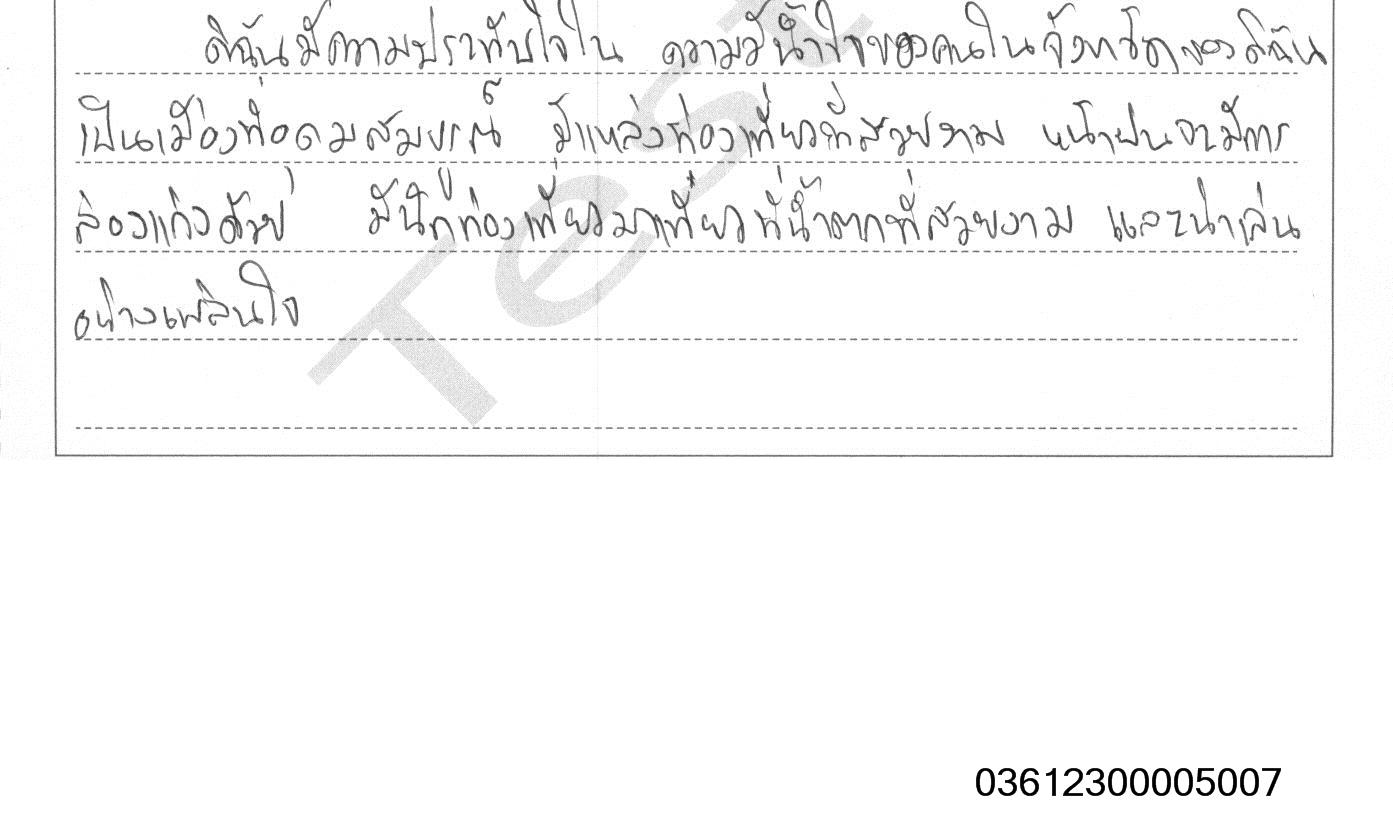 ดิฉันมีความประทับใจใน ความมีน้ำใจของคนในจังหวัดของดิฉัน
เป็นเมืองที่อุดมสมบรณ์ มีแหล่งท่องเที่ยวที่สวยงาม หน้าฝนจะมีการ
ล่องแก่งด้วย มีนักท่องเที่ยวมาเที่ยวที่น้ำตกที่สวยงาม และน่าเล่น
อย่างเพลินใจ
Test
03612300005007